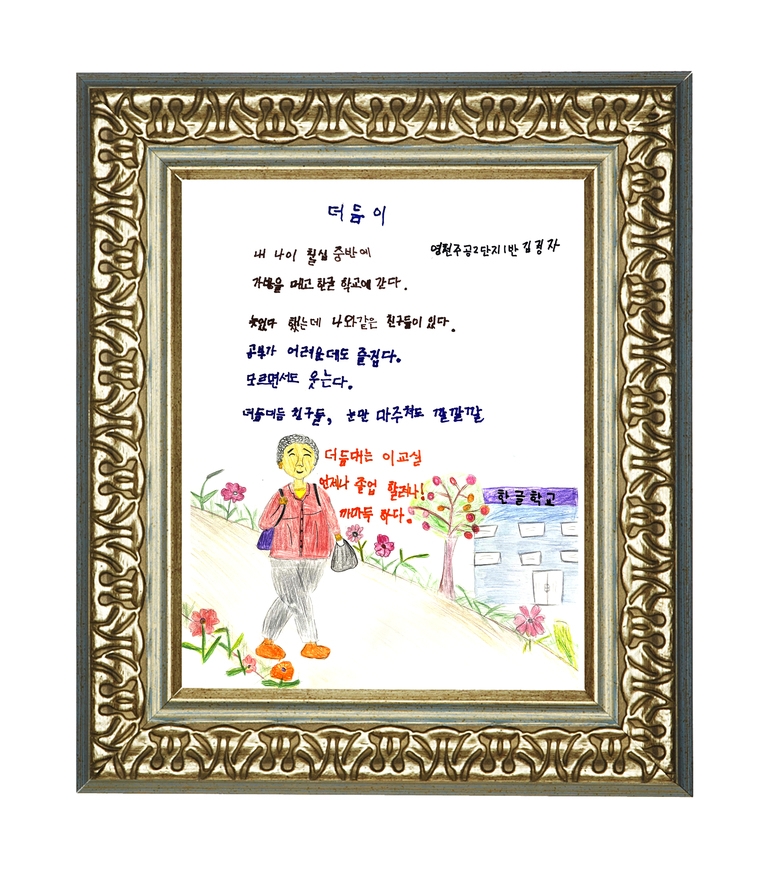 더듬이
내 나이 칠십 중반에
가방을 메고 한글 학교에 간다.
늦었다 했는데 나와같은 친구들이 있다.
공부가 어려운데도 즐겁다.
모르면서도 웃는다.
더듬더듬 친구들, 눈만 마주쳐도 깔깔깔
더듬대는 이교실
언제나 졸업 할려나!
까마득 하다.
한글학교